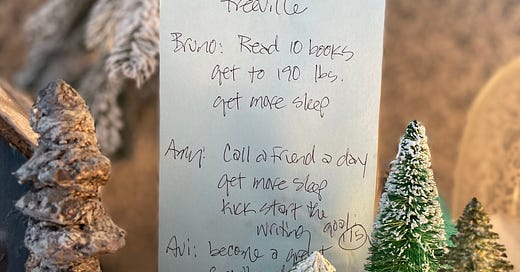 Treeville
Bruno: Read 10 books
get to 190 lbs.
get more sleep
Amy: Call a friend a day
get more sleep
kick start the
writing goal.
Avi: become a great